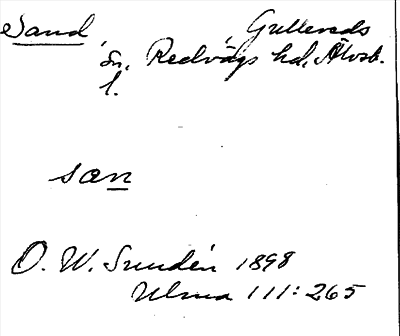 Sand, Gullereds
sn, Redvägs hd, Älvsb.
l.
san
O. W. Sundén 1898
Ulma 111:265